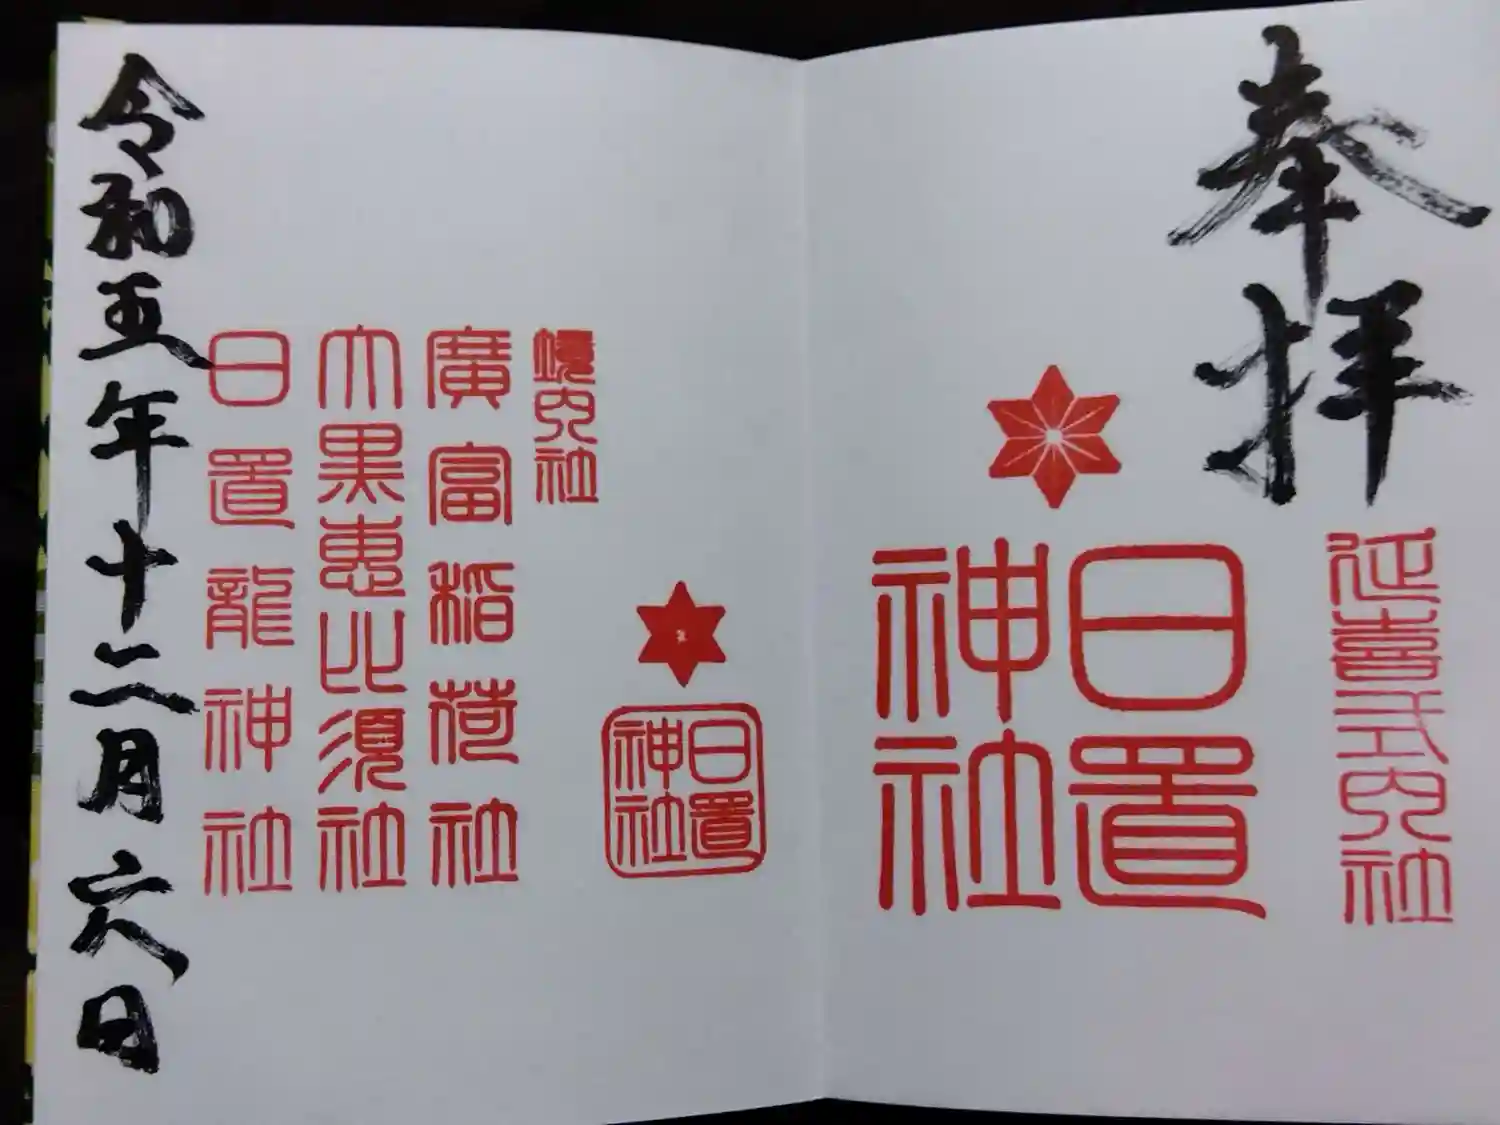 奉拝
延喜式内社
日置
神社
日置
神社
境内社
廣富稲荷社
大黒恵比須社
日置龍神社
令和五年十二月六日